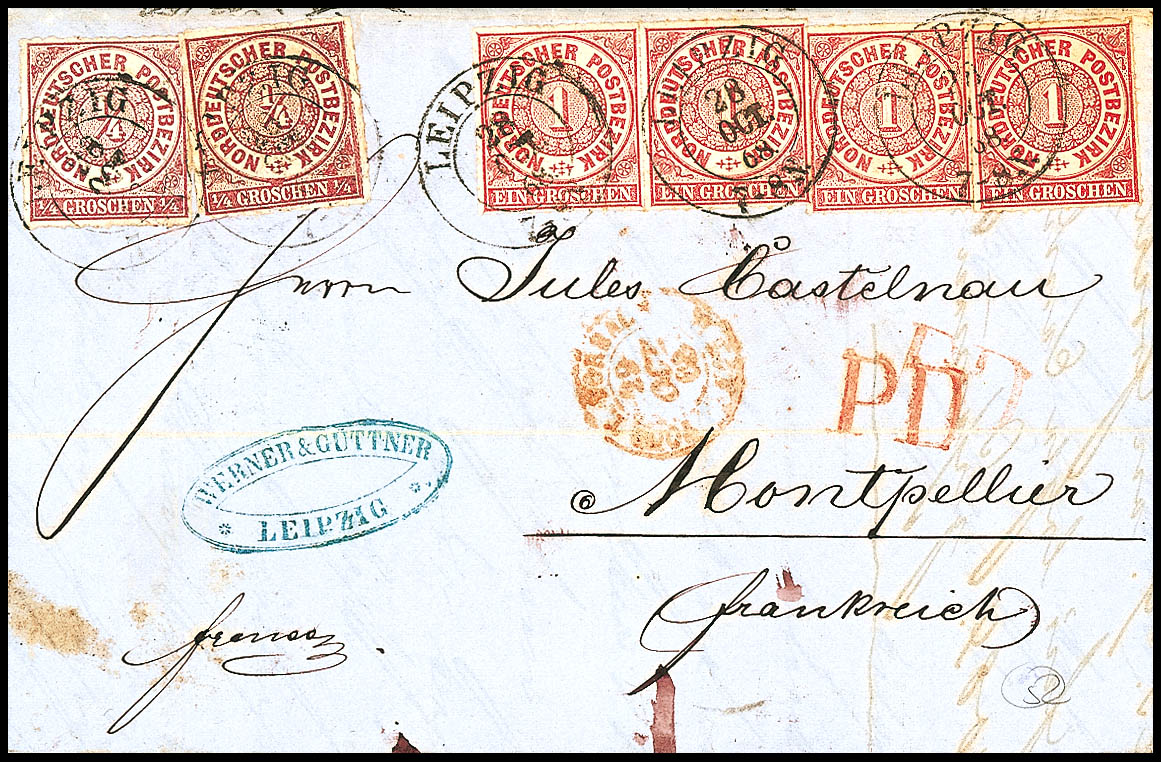 NORDDEUTSCHER POSTBEZIRK
1/4
1/4 GROSCHEN 1/4
NORDDEUTSCHER POSTBEZIRK
1/4
1/4 GROSCHEN 1/4
NORDDEUTSCHER POSTBEZIRK
1
EIN GROSCHEN
NORDDEUTSCHER POSTBEZIRK
1
EIN GROSCHEN
NORDDEUTSCHER POSTBEZIRK
1
EIN GROSCHEN
NORDDEUTSCHER POSTBEZIRK
1
EIN GROSCHEN
LEIPZIG
28
OCT
Herrn Jules Castelnau
PD
WERNER & GÜTTNER
LEIPZIG
Montpellier
Frankreich
franco